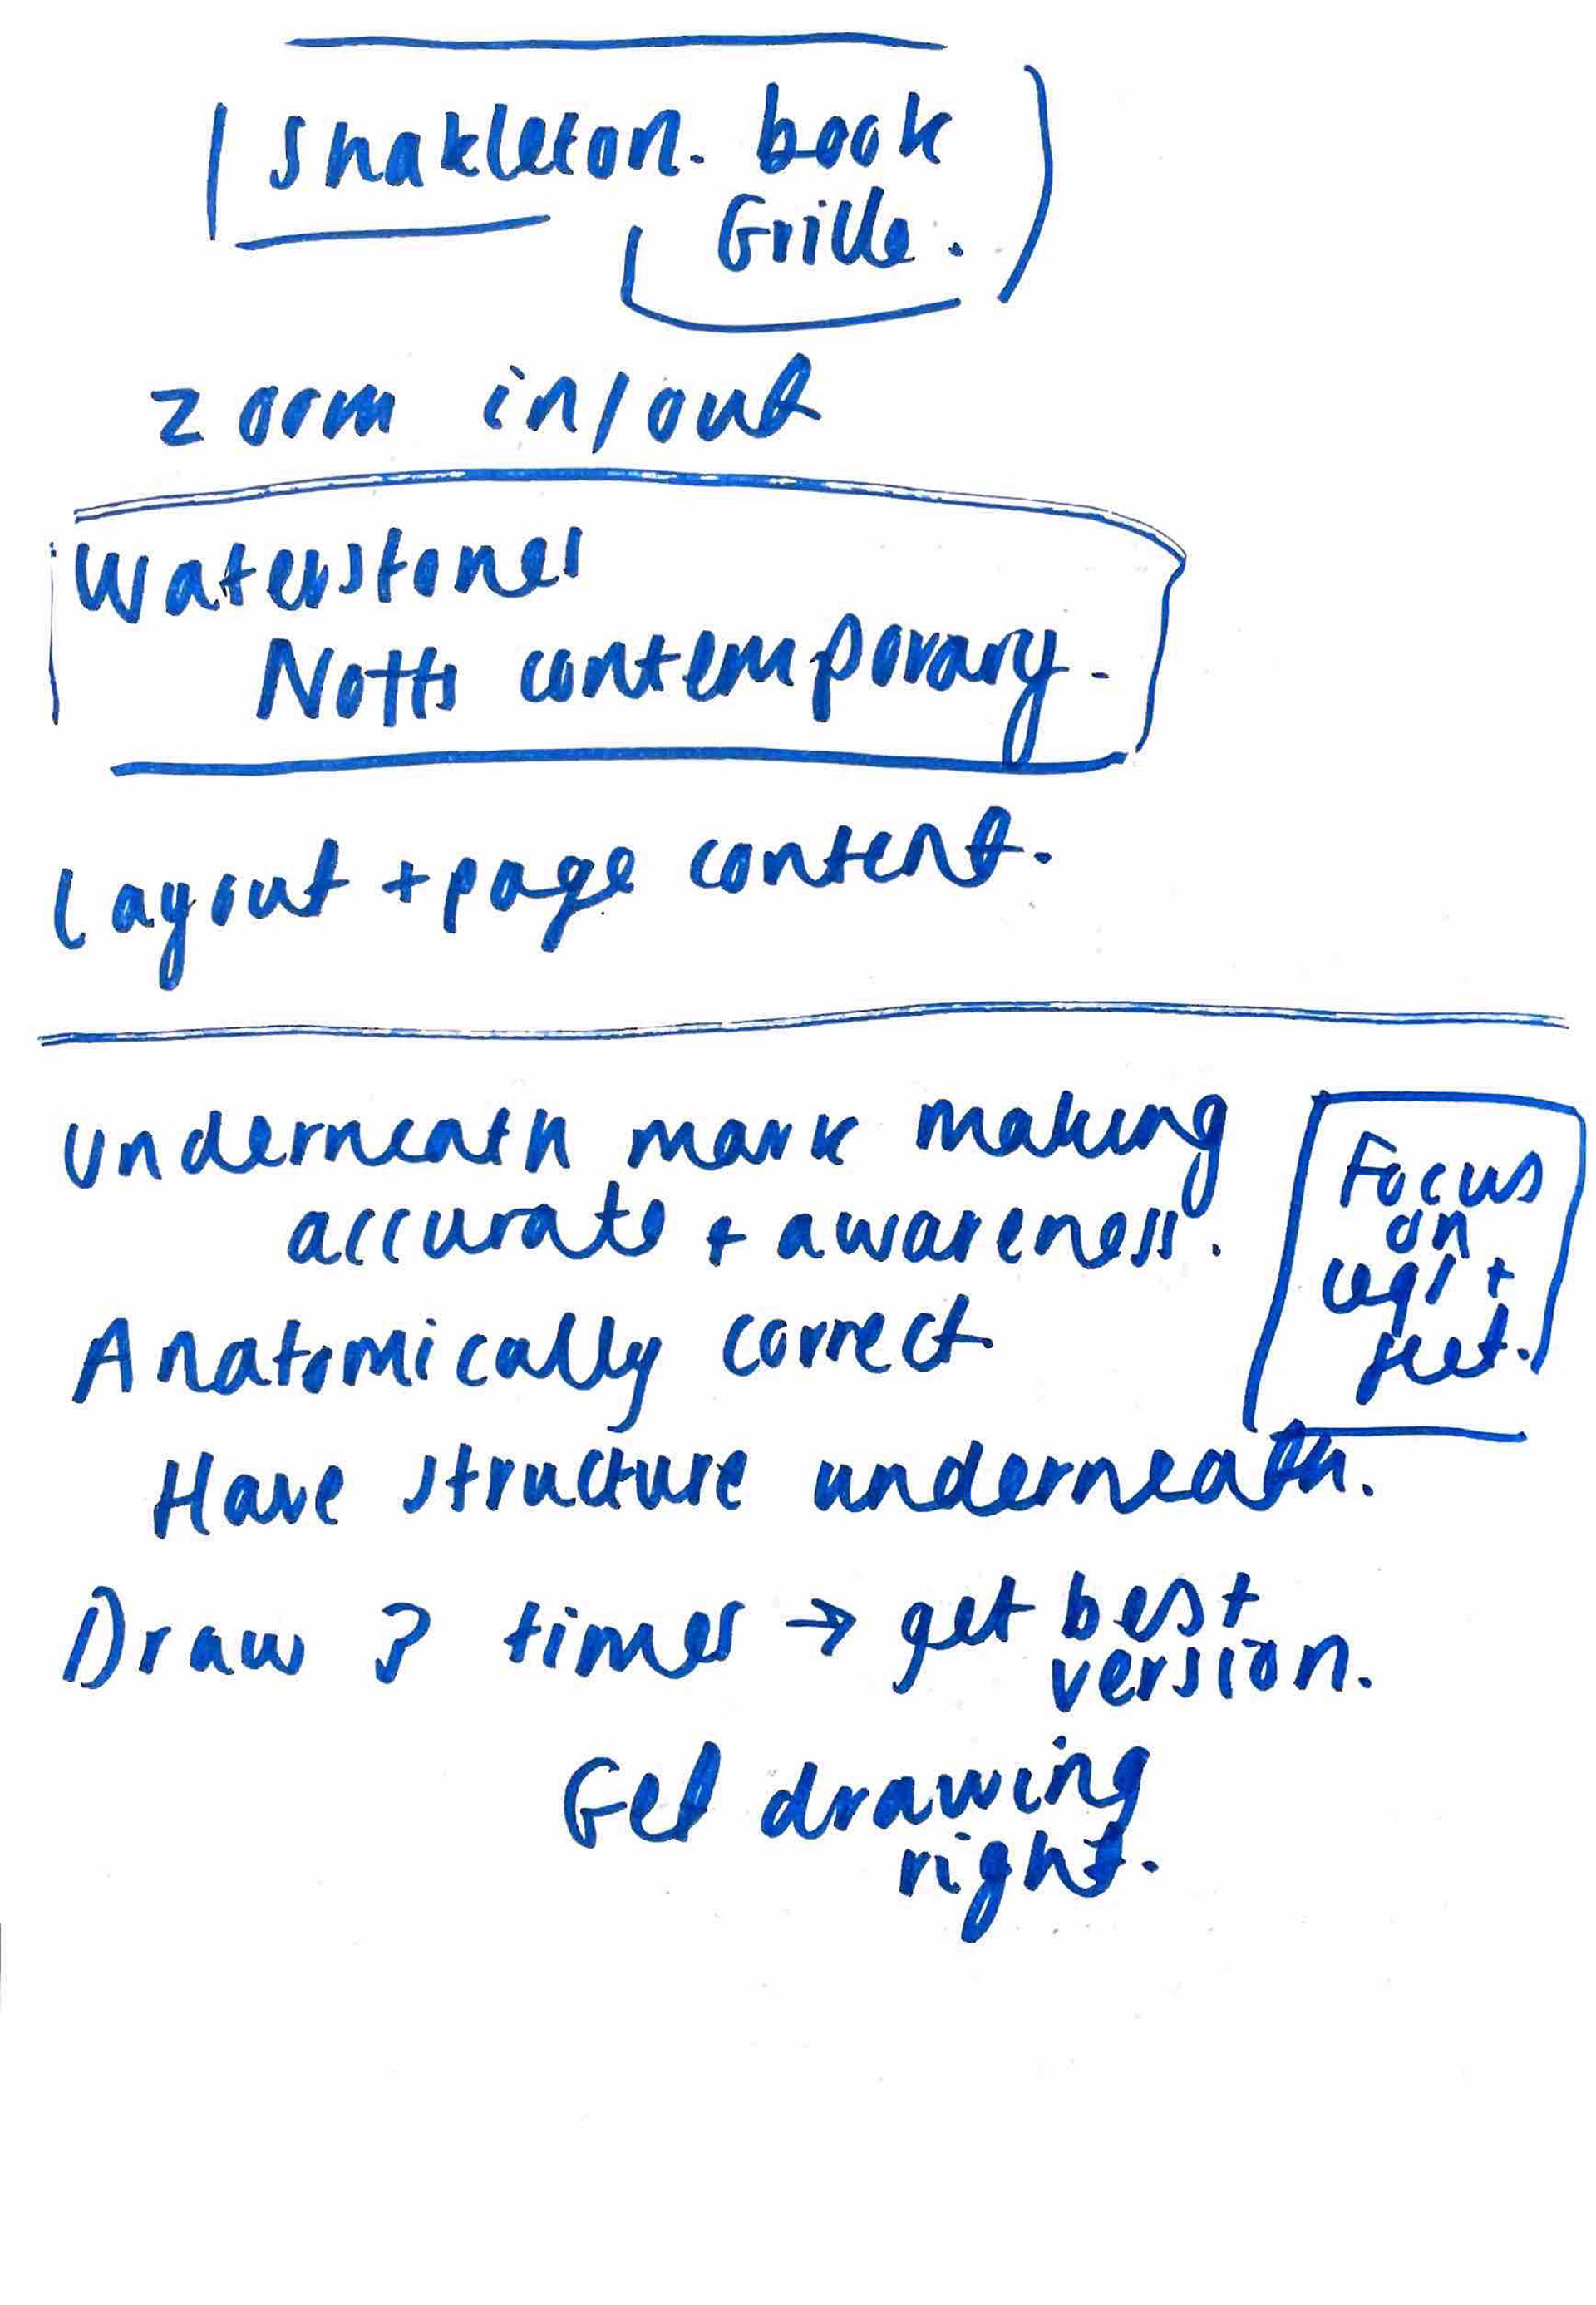 Shakleton. book
Grille.
zoom in/out
Waterstones
Notts contemporary.
Layout + page content.
Underneath mark making
accurate + awareness.
Focus
on
legs +
feet.
Anatomically correct
Have structure underneath.
Draw 3 times → get best
version.
Get drawing
right.